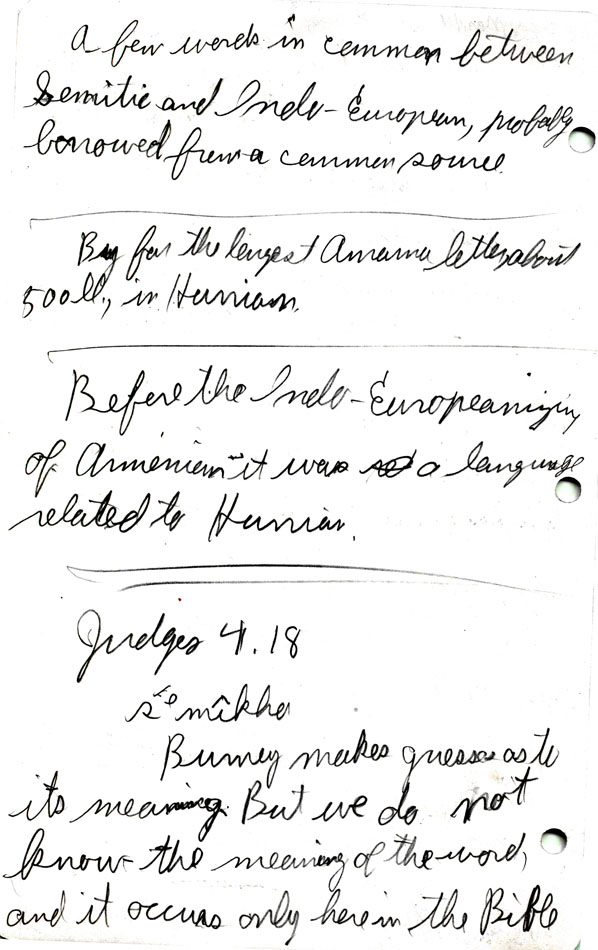 A few words in common between
Semitic and Indo-European, probably
borrowed from a common source.
By far the longest Amarna letter, about
500 ll., in Hurrian.
Before the Indo-Europeanizing
of Armenian it was a language
related to Hurrian.
Judges 4.18
śemîkha
Burney makes guesses as to
its meaning. But we do not
know the meaning of the word,
and it occurs only here in the Bible